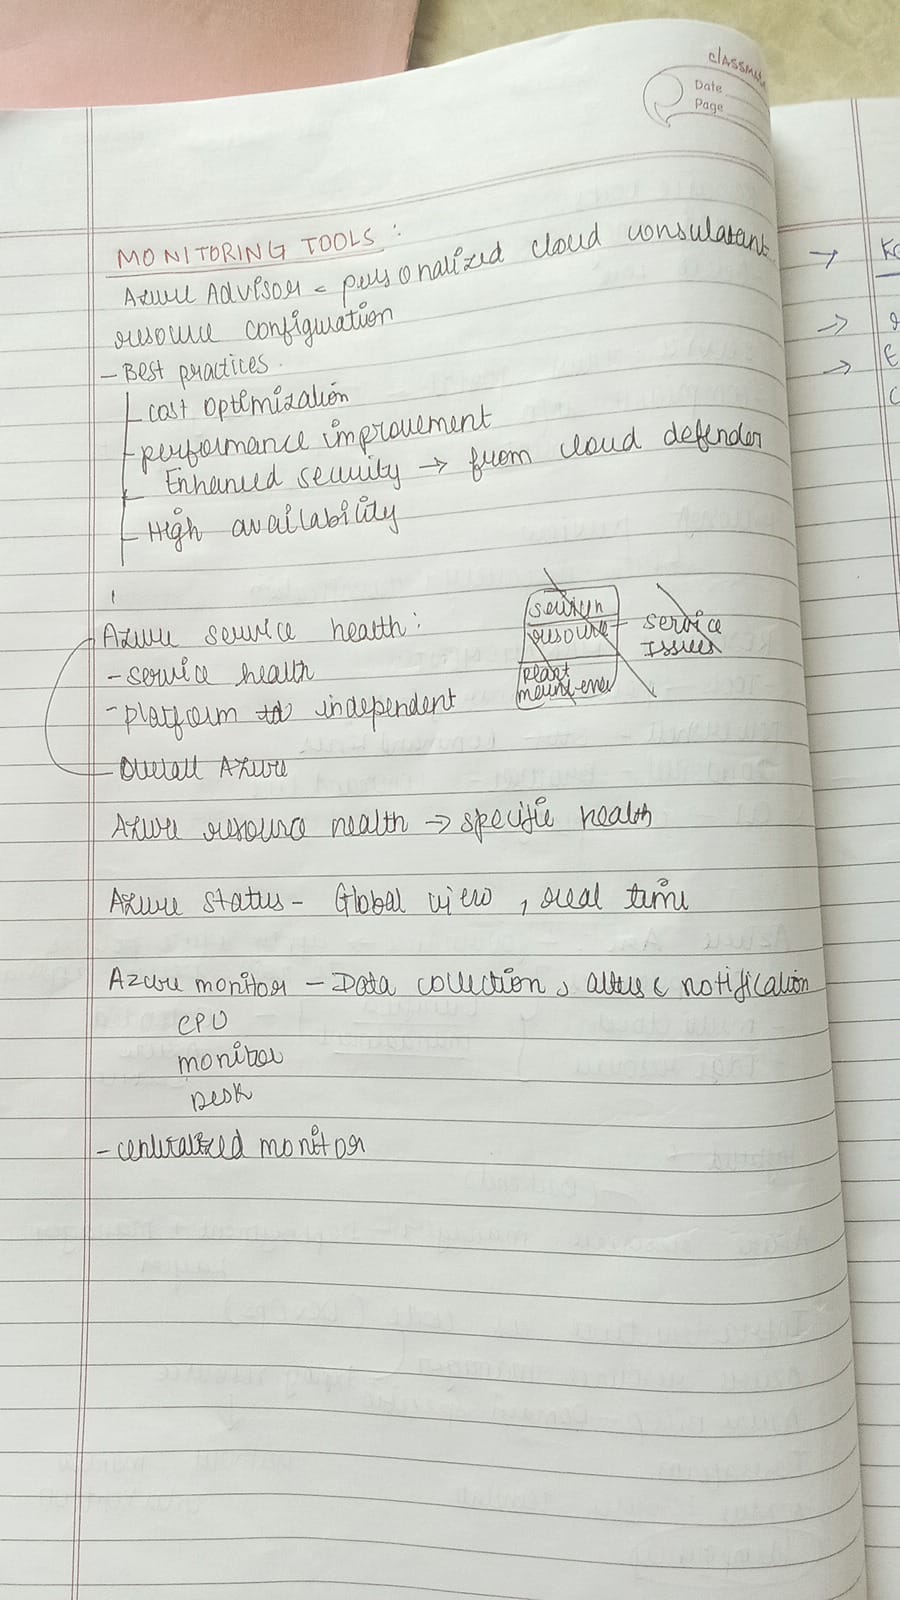 classmate
Date
Page
MONITORING TOOLS :
Azure Advisor = personalized cloud consulatant
resource configuration
- Best practices.
cost optimization
performance improvement
Enhanced security → from cloud defender
High availability
Azure service health :
- service health
- platform independent
- Overall Azure
service
Issues
resource
Azure resource health → specific health
Azure status - Global view , real time
Azure monitor - Data collection, notification
CPU
monitor
Desk
- centralized monitor
→
→
→